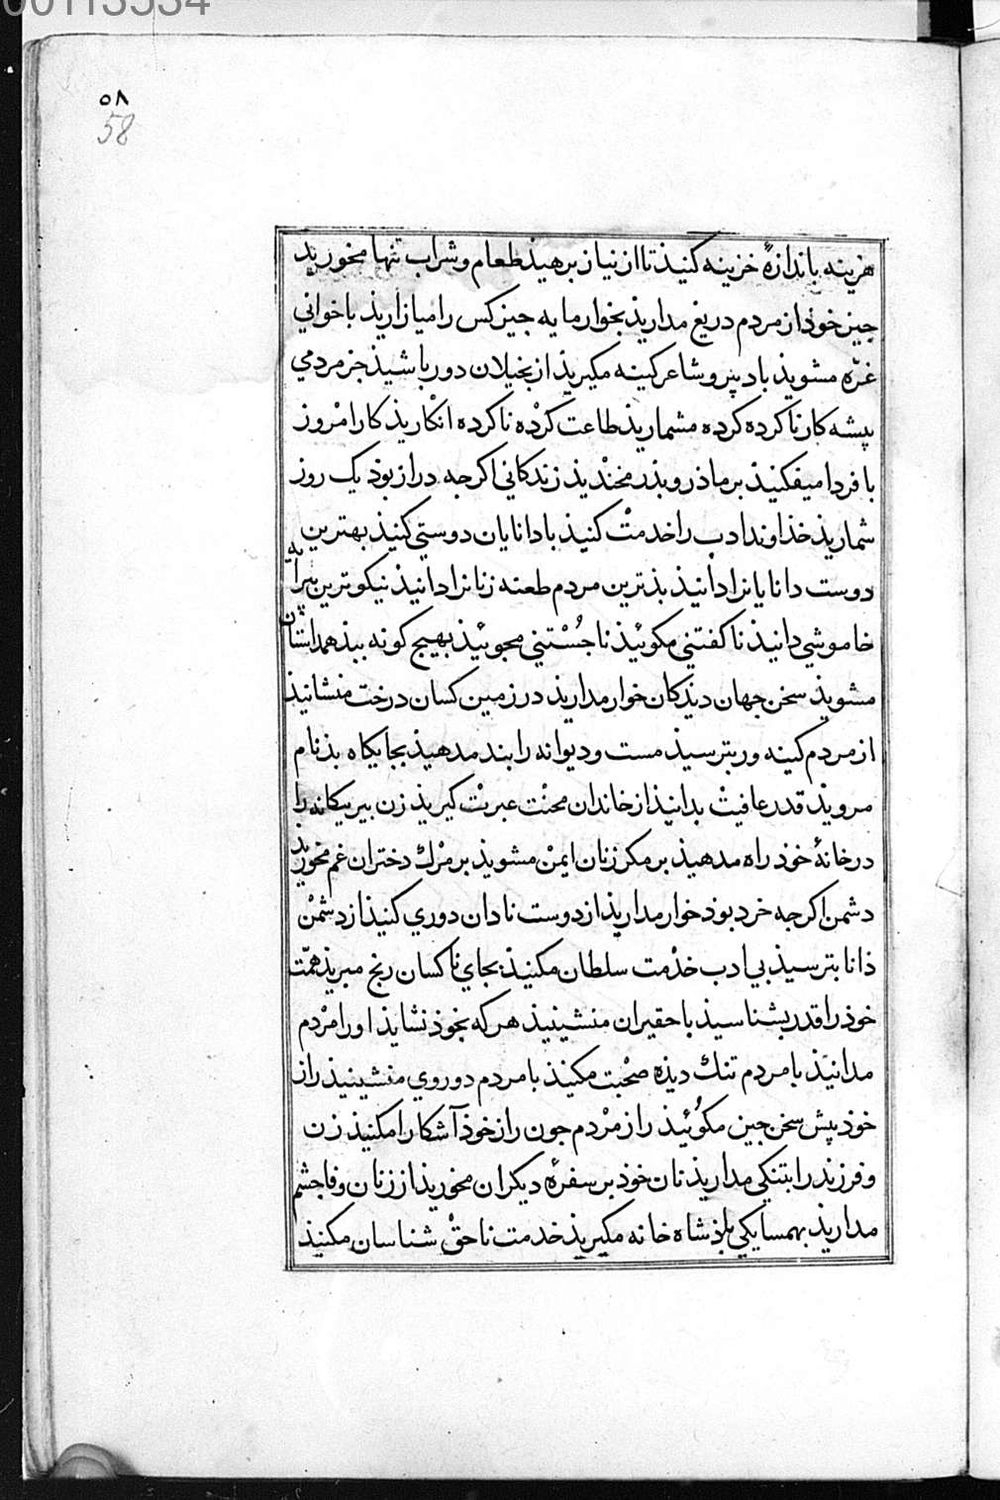 00113534
٥٨
58
هزینه باندازهٔ خزینه کنیذ تا از نیاز برهیذ طعام و شراب تنها مخوریذ
جیز خوذ از مردم دریغ مداریذ بخوار مایه جیز کس را میازاریذ با خوانی
غرّه مشویذ با دبیر و شاعر کینه مکیریذ از بخیلان دور باشیذ جز مردمی
بیشه کار ناکرده کرده مشماریذ طاعت کرْده ناکرده انکاریذ کار امْروز
با فردا میفکنیذ بر ماذر و بذر مخنْدیذ زندکانی اکرجه دراز بوذ یک روز
شماریذ خذاوند ادب را خدمتْ کنیذ با دانایان دوستی کنیذ بهترین
دوست دانایانرا دانیذ بذترین مردم طعنه زنانرا دانیذ نیکوترین بیرایه
خاموشی دانیذ ناکفتنی مکوئیذ ناجُسْتنی مجوئیذ بهیج کونه ببذ همداستان
مشویذ سخن جهان دیذکان خوار مداریذ در زمین کسان درخت منشانیذ
از مردم کینه ور بترسیذ مست و دیوانه را بند مدهیذ بجایکاه بذنام
مرویذ قدر عافیتْ بدانیذ از خاندان محنْت عبرتْ کیریذ زن بیر بیکانه را
در خانهٔ خوذ راه مدهیذ بر مکر زنان ایمنْ مشویذ بر مرْک دختران غم مخوریذ
دشمن اکرجه خرد بوذ خوار مداریذ از دوست نادان دوری کنیذ از دشمنْ
ذانا بترسیذ بی ادب خذمت سلطان مکنیذ بجای ناکسان رنج مبریذ همّت
خوذ را قدر بشناسیذ با حقیران منشینیذ هر که بخوذ نشایذ او را مرْدم
مدانیَذ با مردم تنک دیذه صحْبت مکنیذ با مردم دو روی منشینیذ راز
خوذ پیش سخن جین مکوُئیذ راز مرْدم جون راز خوذ آشکارا مکنیذ زن
و فرزند را بتنکی مداریذ نان خوذ بر سفرهٔ دیکران مخوریذ از زنان وفا جشم
مداریذ بهمسایکی باذشاه خانه مکیریذ خدمت ناحقْ شناسان مکنیذ